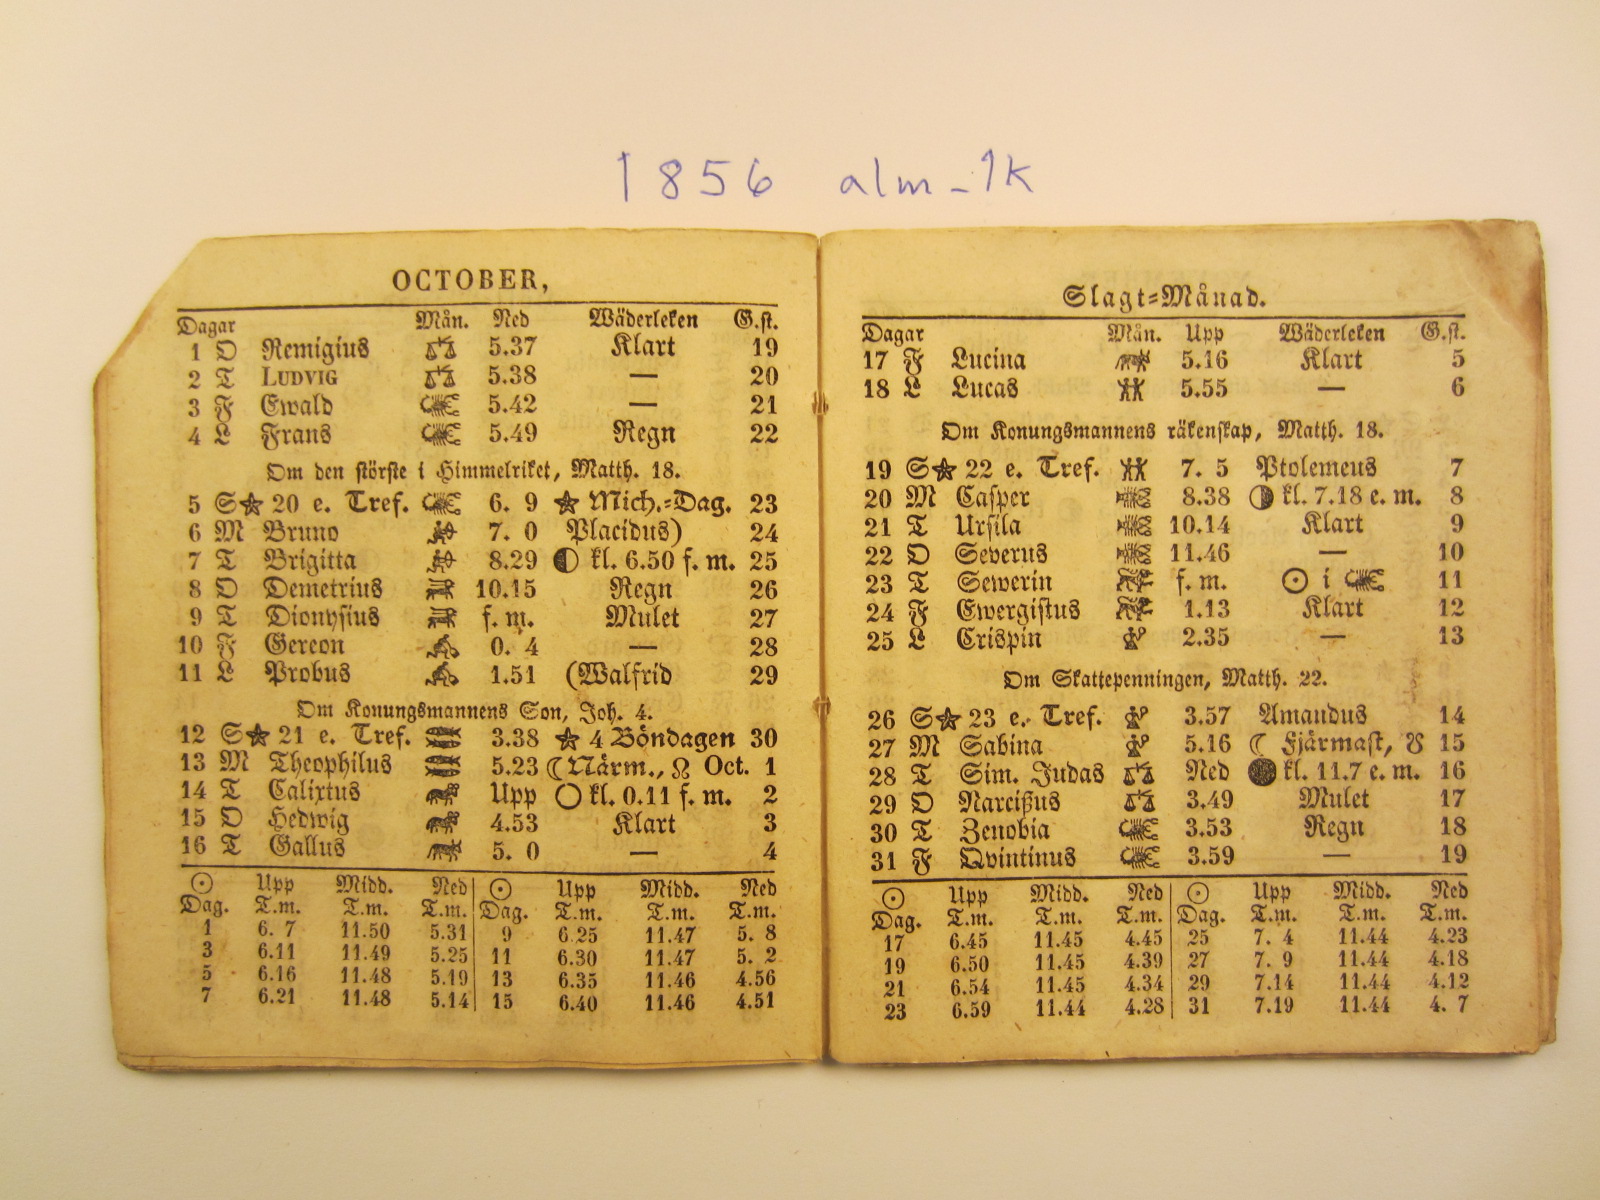 1856 alm_1k
OCTOBER,
Dagar Mån. Ned Wäderleken G.st.
1 O Remigius 5.37 Klart 19
2 T LUDVIG 5.38 — 20
3 F Ewald 5.42 — 21
4 L Frans 5.49 Regn 22
Om den störste i Himmelriket, Matth. 18.
5 S★ 20 e. Tref. 6. 9 ★ Mich.-Dag. 23
6 M Bruno 7. 0 Placidus) 24
7 T Brigitta 8.29 kl. 6.50 f. m. 25
8 O Demetrius 10.15 Regn 26
9 T Dionysius f. m. Mulet 27
10 F Gereon 0. 4 — 28
11 L Probus 1.51 (Walfrid 29
Om Konungsmannens Son, Joh. 4.
12 S★ 21 e. Tref. 3.38 ★ 4 Böndagen 30
13 M Theophilus 5.23 ☾ Närm., ☊ Oct. 1
14 T Calixtus Upp ○ kl. 0.11 f. m. 2
15 O Hedwig 4.53 Klart 3
16 T Gallus 5. 0 — 4
☉ Upp Midd. Ned ☉ Upp Midd. Ned
Dag. T.m. T.m. T.m. Dag. T.m. T.m. T.m.
1 6. 7 11.50 5.31 9 6.25 11.47 5. 8
3 6.11 11.49 5.25 11 6.30 11.47 5. 2
5 6.16 11.48 5.19 13 6.35 11.46 4.56
7 6.21 11.48 5.14 15 6.40 11.46 4.51
Slagt-Månad.
Dagar Mån. Upp Wäderleken G.st.
17 F Lucina 5.16 Klart 5
18 L Lucas 5.55 — 6
Om Konungsmannens räkenskap, Matth. 18.
19 S★ 22 e. Tref. 7. 5 Ptolemeus 7
20 M Casper 8.38 kl. 7.18 e. m. 8
21 T Ursila 10.14 Klart 9
22 O Severus 11.46 — 10
23 T Sewerin f. m. ☉ i ♏ 11
24 F Ewergistus 1.13 Klart 12
25 L Crispin 2.35 — 13
Om Skattepenningen, Matth. 22.
26 S★ 23 e. Tref. 3.57 Amandus 14
27 M Sabina 5.16 ☾ Fjärmast, ☋ 15
28 T Sim. Judas Ned ● kl. 11.7 e. m. 16
29 O Narcißus 3.49 Mulet 17
30 T Zenobia 3.53 Regn 18
31 F Qvintinus 3.59 — 19
☉ Upp Midd. Ned ☉ Upp Midd. Ned
Dag. T.m. T.m. T.m. Dag. T.m. T.m. T.m.
17 6.45 11.45 4.45 25 7. 4 11.44 4.23
19 6.50 11.45 4.39 27 7. 9 11.44 4.18
21 6.54 11.45 4.34 29 7.14 11.44 4.12
23 6.59 11.44 4.28 31 7.19 11.44 4. 7